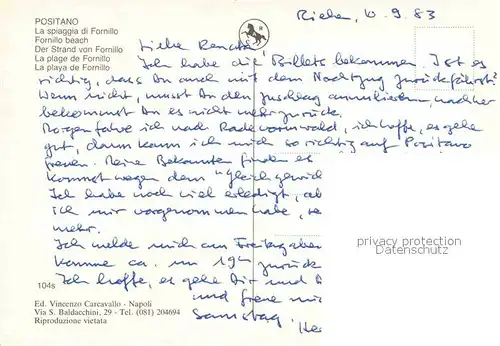 POSITANO
La spiaggia di Fornillo
Fornillo beach
Der Strand von Fornillo
La plage de Fornillo
La playa de Fornillo
Riehen, 10.9.83
Liebe Renate!
Ich habe die Billets bekommen. Ist es
richtig, dass Du auch mit dem Nachtzug zurückfährst?
Wenn nicht, musst Du den Zuschlag annullieren, nachher
bekommst Du es nicht mehr zurück.
Morgen fahre ich nach Radevormwald, ich hoffe, es gehe
gut, dann kann ich mich so richtig auf Positano
freuen. Meine Bekannten finden es
kommst wegen dem "Gleichgewich
Ich habe noch viel erledigt, ab
ich mir vorgenommen habe, 
mehr.
Ich melde mich am Freitagabend
komme ca. um 19 zurück
Ich hoffe, es gehe Dir und
und freue mi
Samstag.
privacy protection
Datenschutz
104s
Ed. Vincenzo Carcavallo - Napoli
Via S. Baldacchini, 29 - Tel. (081) 204694
Riproduzione vietata